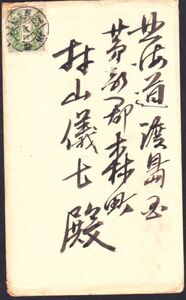 北海道渡島国
茅部郡森町
村山儀七殿